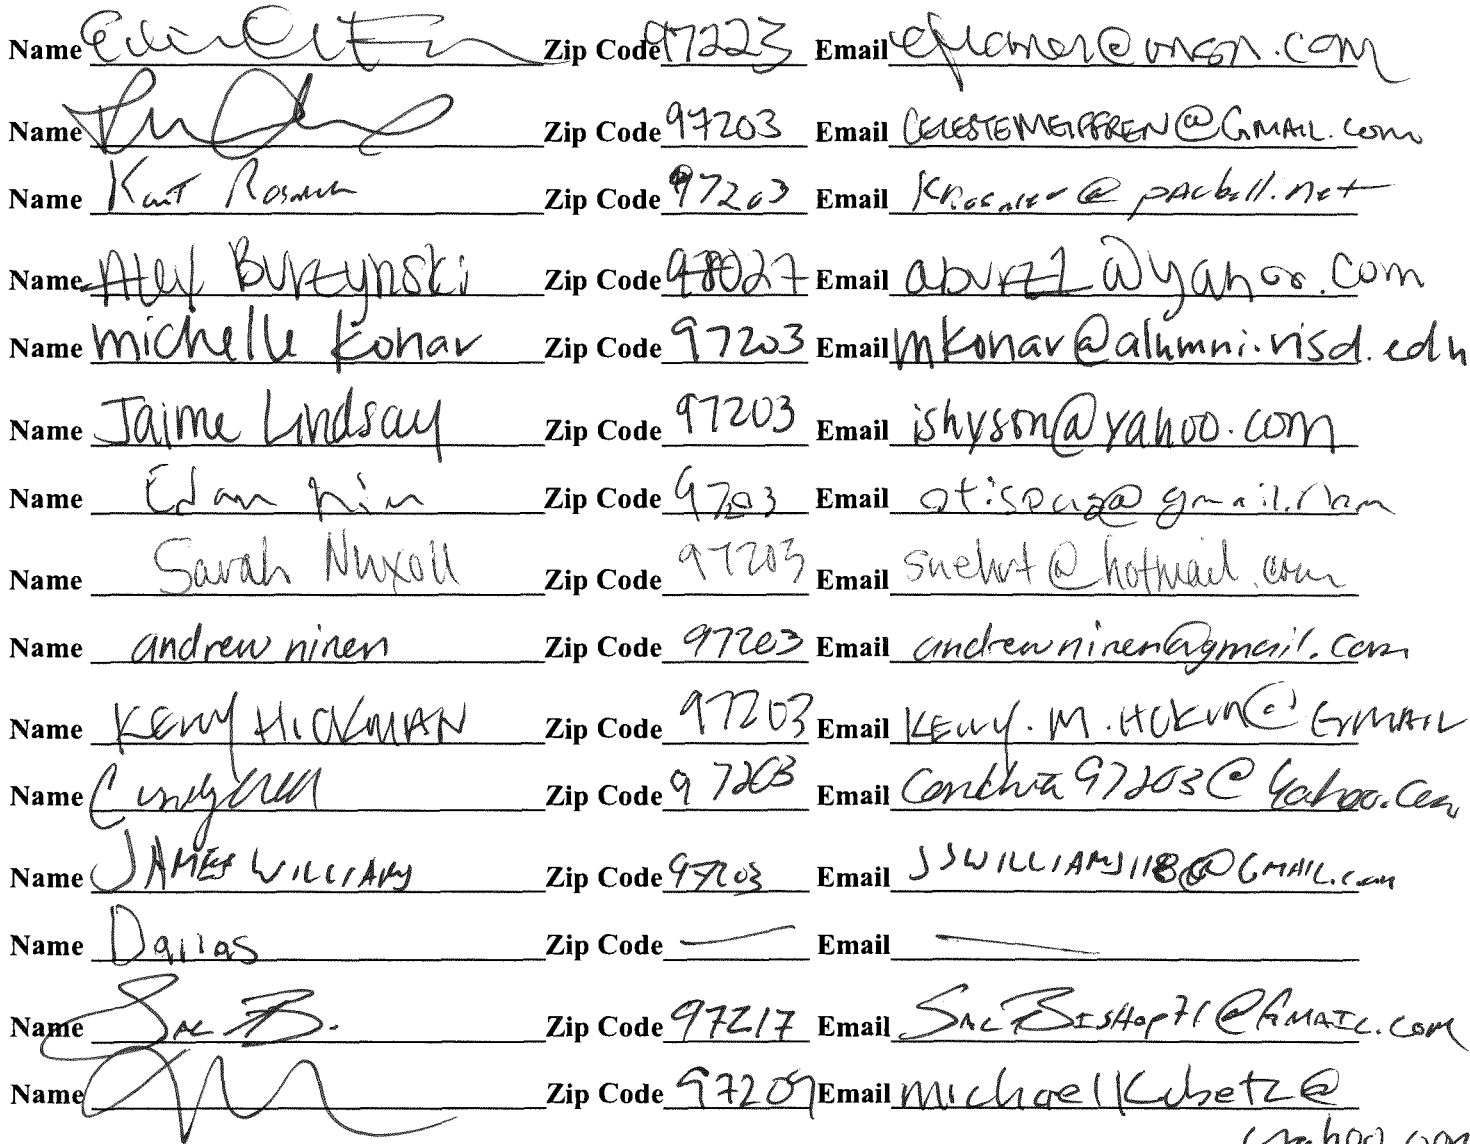 Name Zip Code 97223 Email
Name Zip Code 97203 Email CELESTEMEIFFREN@GMAIL.com
Name Kurt Zip Code 97203 Email @pacbell.net
Name Alex Burzynski Zip Code 98027 Email aburz1@yahoo.com
Name michelle konar Zip Code 97203 Email mkonar@alumni.risd.edu
Name Jaime Lindsay Zip Code 97203 Email ishyson@yahoo.com
Name Zip Code 97203 Email
Name Sarah Nuxoll Zip Code 97203 Email
Name andrew niren Zip Code 97203 Email andrewniren@gmail.com
Name KELLY HICKMAN Zip Code 97203 Email
Name Cindy Zip Code 97203 Email
Name JAMES WILLIAMS Zip Code 97203 Email JSWILLIAMS118@GMAIL.com
Name Dallas Zip Code — Email —
Name Sal B. Zip Code 97217 Email SalBishop71@Gmail.com
Name Zip Code 97209 Email michaelkubetz@
yahoo.com